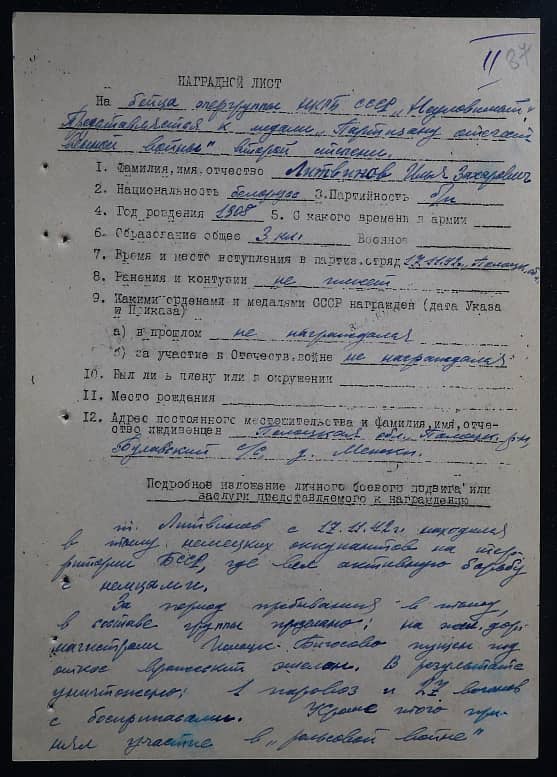 II 37
НАГРАДНОЙ ЛИСТ
На бойца опергруппы НКГБ СССР „Неуловимые",
Представляется к медали „Партизану отечест
венной войны" второй степени.
1. Фамилия, имя, отчество Литвинов Илья Захарович
2. Национальность белорус 3. Партийность б/п
4. Год рождения 1908 5. С какого времени в армии
6. Образование общее 3 кл. Военное
7. Время и место вступления в партиз. отряд 17.11.42г.
8. Ранения и контузии не имеет
9. Какими орденами и медалями СССР награжден (дата Указа
и Приказа)
а) в прошлом не награждался
б) за участие в Отечеств. войне не награждался
10. Был ли в плену или в окружении
11. Место рождения
12. Адрес постоянного местожительства и фамилия, имя, отче-
ство иждивенцев Полоцкая обл.
с/с д.
Подробное изложение личного боевого подвига или
заслуги представляемого к награждению
т. Литвинов с 17.11.42г. находился
в тылу немецких оккупантов на тер
ритории БССР, где вел активную борьбу
с немцами.
За период пребывания в тылу,
в составе группы произвел: на жел. дор.
магистрали Полоцк-Бигосово пущен под
откос вражеский эшелон. В результате
уничтожено: 1 паровоз и 27 вагонов
с боеприпасами. Кроме того при-
нял участие в „рельсовой войне"